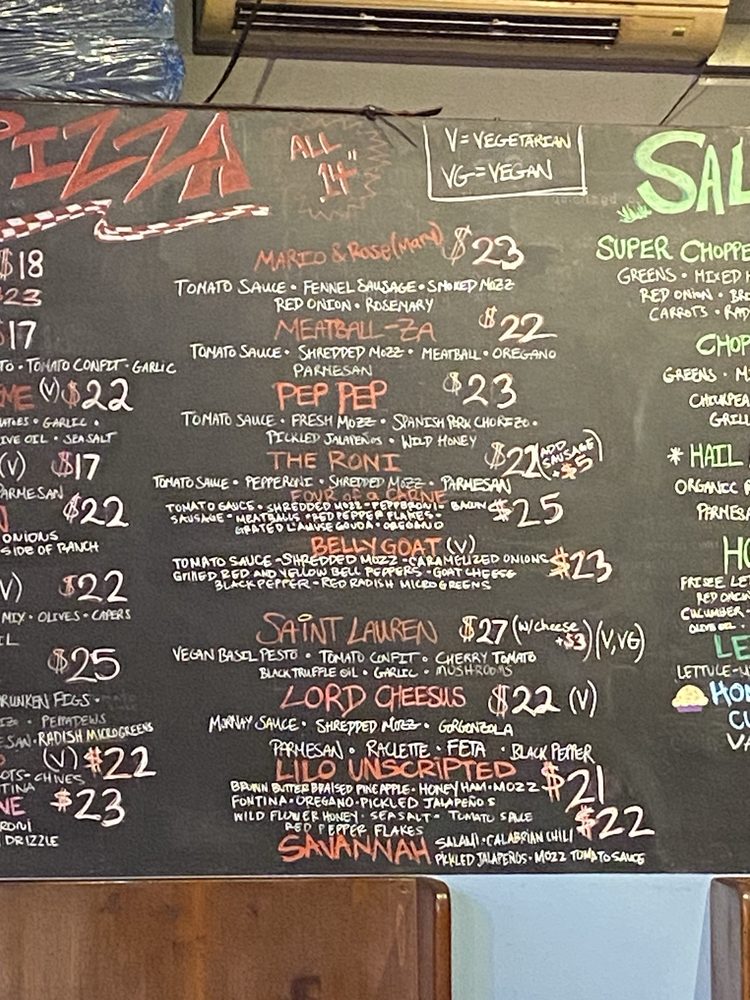 PIZZA
ALL
14"
V=VEGETARIAN
VG=VEGAN
$18
$23
$17
TO · TOMATO CONFIT · GARLIC
ME (V) $22
ATOES · GARLIC ·
IVE OIL · SEA SALT
(V) $17
PARMESAN
N $22
ONIONS
SIDE OF RANCH
V) $22
MIX · OLIVES · CAPERS
IL
$25
DRUNKEN FIGS ·
IZO · PEPPADEWS
ESAN · RADISH MICROGREENS
(V) $22
OTS · CHIVES
TINA
NE $23
RONI
DRIZZLE
MARIO & ROSE(MARY) $23
TOMATO SAUCE · FENNEL SAUSAGE · SMOKED MOZZ
RED ONION · ROSEMARY
MEATBALL-ZA $22
TOMATO SAUCE · SHREDDED MOZZ · MEATBALL · OREGANO
PARMESAN
PEP PEP $23
TOMATO SAUCE · FRESH MOZZ · SPANISH PORK CHORIZO ·
PICKLED JALAPEÑOS · WILD HONEY
THE RONI $22 (ADD SAUSAGE +$5)
TOMATO SAUCE · PEPPERONI · SHREDDED MOZZ · PARMESAN
FOUR of a CARNE $25
TOMATO SAUCE · SHREDDED MOZZ · PEPPERONI · BACON
SAUSAGE · MEATBALLS · RED PEPPER FLAKES ·
GRATED L'AMUSE GOUDA · OREGANO
BELLY GOAT (V) $23
TOMATO SAUCE · SHREDDED MOZZ · CARAMELIZED ONIONS
GRILLED RED AND YELLOW BELL PEPPERS · GOAT CHEESE
BLACK PEPPER · RED RADISH MICROGREENS
SAINT LAUREN $27 (w/cheese +$3) (V,VG)
VEGAN BASIL PESTO · TOMATO CONFIT · CHERRY TOMATO
BLACK TRUFFLE OIL · GARLIC · MUSHROOMS
LORD CHEESUS $22 (V)
MORNAY SAUCE · SHREDDED MOZZ · GORGONZOLA
PARMESAN · RACLETTE · FETA · BLACK PEPPER
LILO UNSCRIPTED $21
BROWN BUTTER BRAISED PINEAPPLE · HONEY HAM · MOZZ
FONTINA · OREGANO · PICKLED JALAPEÑOS
WILD FLOWER HONEY · SEA SALT · TOMATO SAUCE
RED PEPPER FLAKES
SAVANNAH $22
SALAMI · CALABRIAN CHILI
PICKLED JALAPEÑOS · MOZZ TOMATO SAUCE
SAL
SUPER CHOPPE
GREENS · MIXED H
RED ONION · BR
CARROTS · RAD
CHOP
GREENS · M
CHICKPEA
GRILL
* HAIL
ORGANIC
PARMESA
HO
FRISEE LE
RED ONION
CUCUMBER
OLIVE OIL ·
LE
LETTUCE
HON
CU
VA